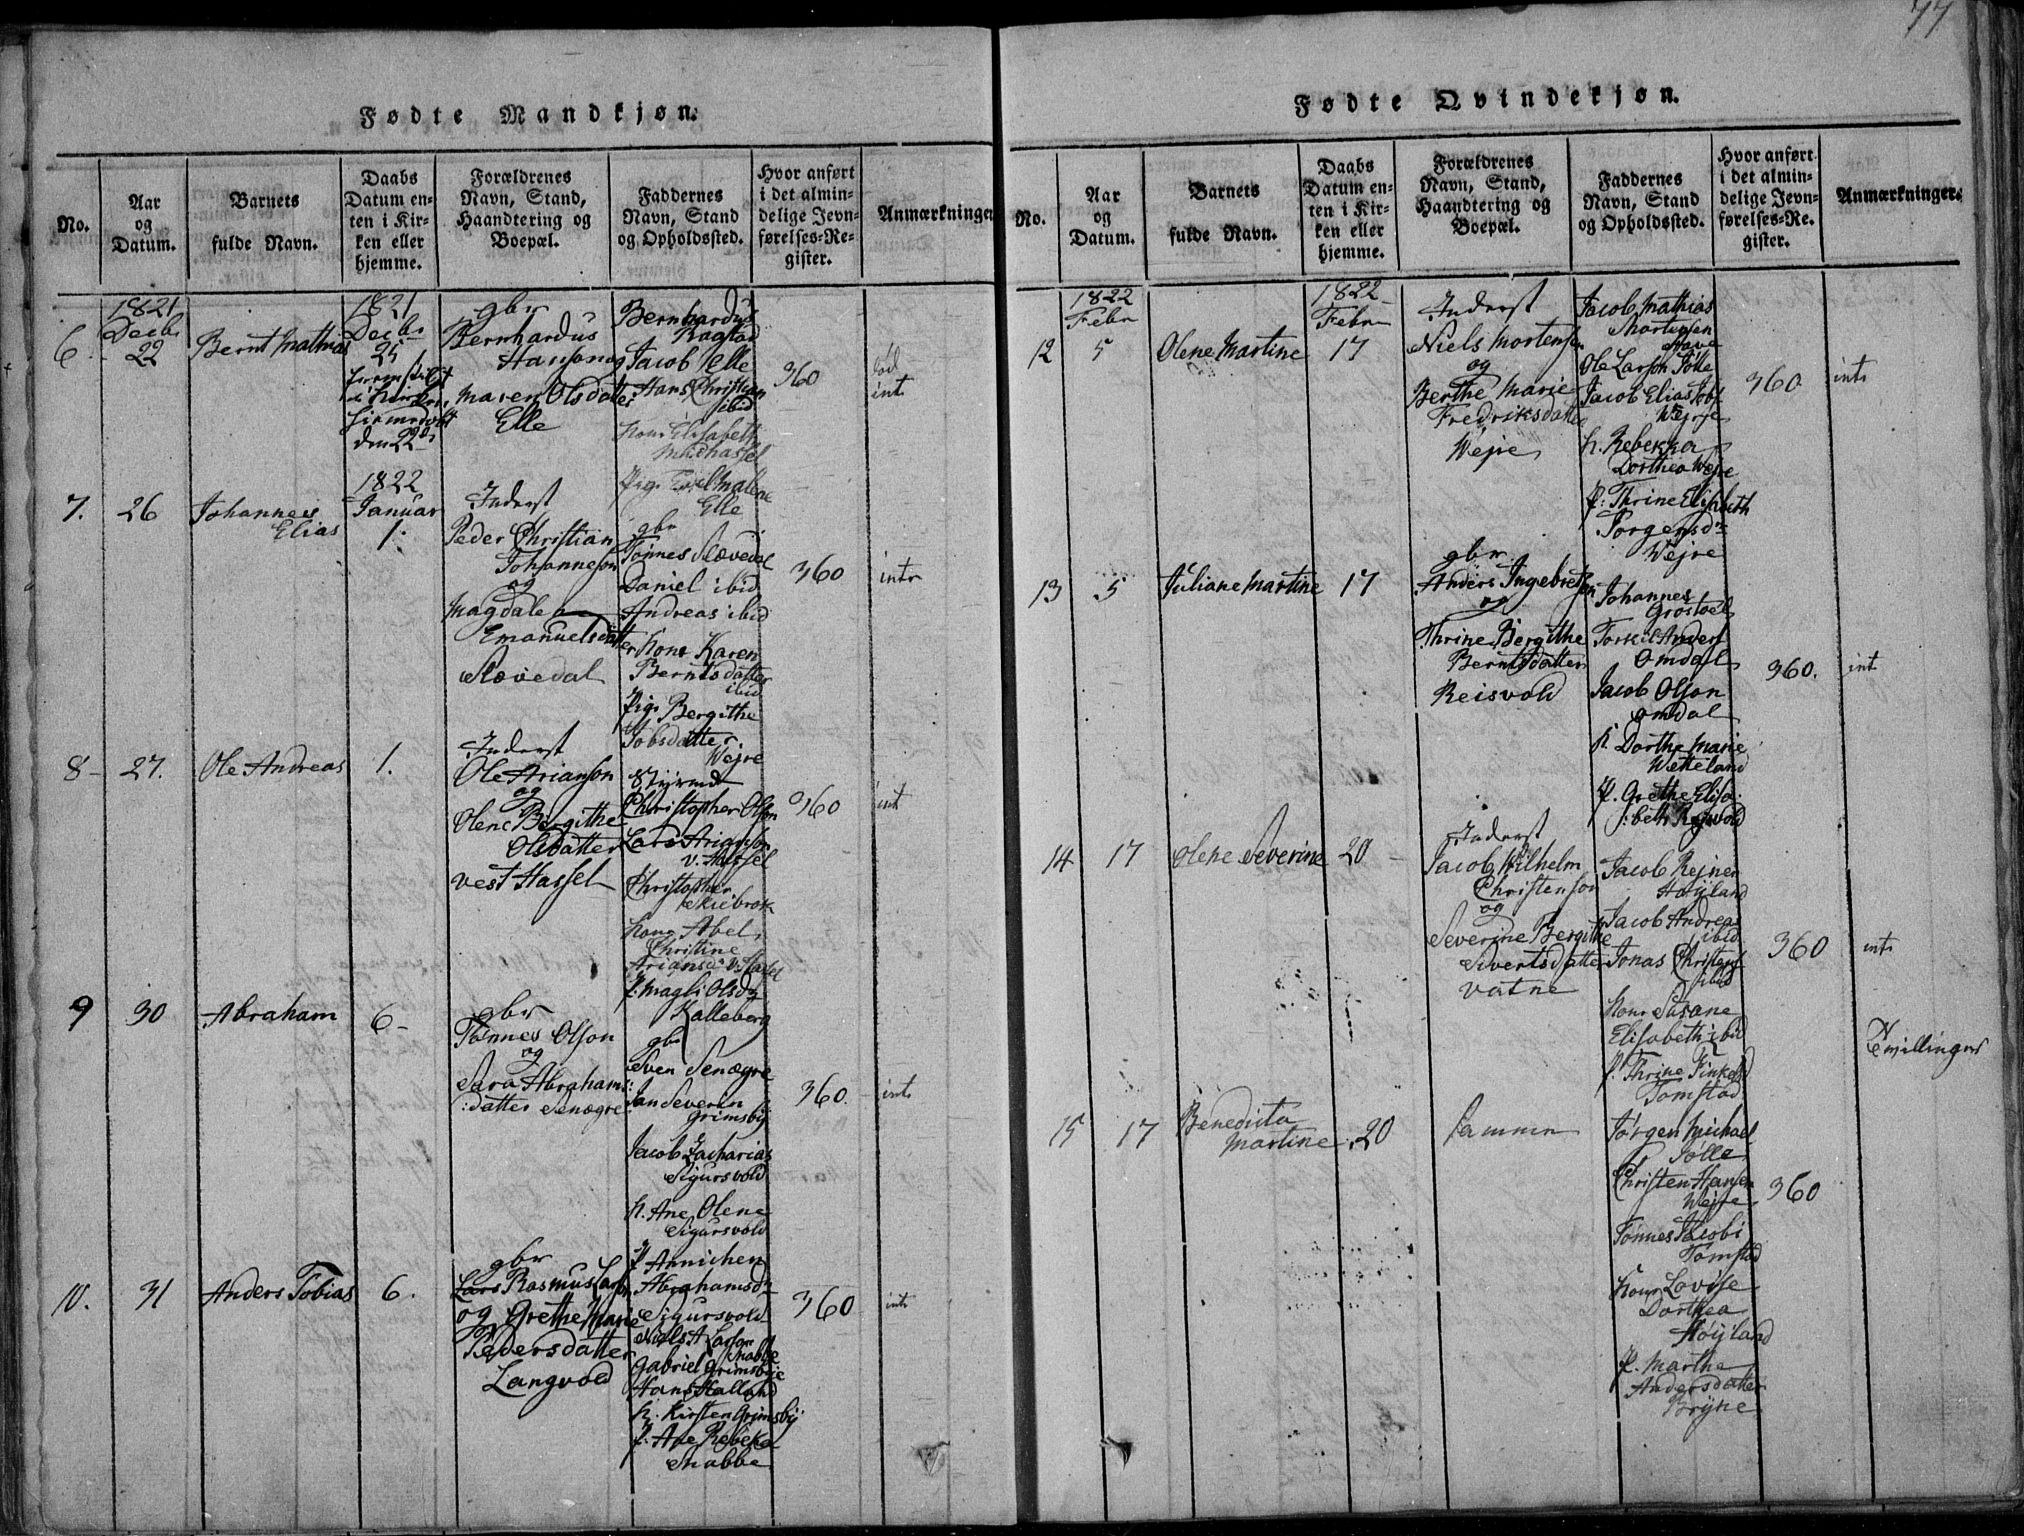 77
Fødte Mandkjøn.
No.
Aar
og
Datum.
Barnets
fulde Navn.
Daabs
Datum en-
ten i Kir-
ken eller
hjemme.
Forældrenes
Navn, Stand,
Haandtering og
Boepæl.
Faddernes
Navn, Stand
og Opholdssted.
Hvor anført
i det almin-
delige Jevn-
førelses-Re-
gister.
Anmærkninger
6
1821
Decbr
22
Bernt Mathias
1821
Decbr
25
den 22
gbr
Bernhardus
Hanson og
Maren Olsdatter
Elle
Bernhardus
Ragstad
Jacob Elle
Hans Christian
ibid
Kone Elisabeth
Midhassel
Malene
Elle
360
int
7.
26
Johannes
Elias
1822
Januar
1.
Inderst
Peder Christian
Johanneson
og
Magdalena
Emanuelsdatter
Slævedal
gbr
Tønnes Slævedal
Daniel ibid
Andreas ibid
Kone Karen
Berntsdatter
ibid
Pig. Bergithe
Jobsdatter
Wejre
360
int
8
27.
Ole Andreas
1.
Inderst
Ole Arianson
og
Olene Bergithe
Olsdatter
Vest Hassel
Styrmd
Christopher Olson
Lars Arianson
v. Hassel
Christopher
Skiebrok
Kone Abel
Christine
Ariansd. v. Hassel
P. Magli Olsd
Kalleberg
360
int
9
30
Abraham
6
gbr
Tønnes Olson
og
Sara Abrahams:
:datter Senøgre
gbr
Sven Senøgre
Jan Severin
Grimsby
Jacob Zacharias
Sigursvold
K. Ane Olene
Sigursvold
P Annichen
Abrahamsd
Sigursvold
360.
int
10.
31
Anders Tobias
6.
gbr
Lars Rasmus Larsn
og Grethe Marie
Pedersdatter
Langvold
Niels A Larson
Snabbe
Gabriel Grimsbye
Hans Halland
K. Kirsten Grimsby
P. Ane Rebeka
Snabbe
360
int
Fødte Qvindekjøn.
No.
Aar
og
Datum.
Barnets
fulde Navn.
Daabs
Datum en-
ten i Kir-
ken eller
hjemme.
Forældrenes
Navn, Stand,
Haandtering og
Boepæl.
Faddernes
Navn, Stand
og Opholdssted.
Hvor anført
i det almin-
delige Jevn-
førelses-Re-
gister.
Anmærkninger.
12
1822
Febr
5
Olene Martine
1822
Febr
17
Inderst
Niels Mortensen
og
Berthe Marie
Fredriksdatter
Wejre
Jacob Mathias
Mortensen
Ole Larson Jølle
Jacob Elias Jobs
Wejre
K. Rebekka
Dorthea Wejre
P: Thrine Elisabeth
Jørgensd
Wejre
360
int
13
5
Juliane Martine
17
gbr
Anders Ingebretsen
og
Thrine Bergithe
Berntsdatter
Reisvold
Johannes
Grostøel
Torkil Anders
Omdal
Jacob Olson
Omdal
K. Dorthe Marie
Wetteland
P. Grethe Elisa:
:beth Rejsvold
360.
int
14
17
Olene Severine
20
Inderst
Jacob Wilhelm
Christenson
og
Severine Bergithe
Sivertsdatter
Vatne
Jacob Rejner
Høyland
Jacob Andreas
ibid
Jonas Christens
ibid
Kone Susane
Elisabeth ibid
P. Thrine Tinkels
Tomstad
360
int
Tvillinger
15
17
Benedicta
Martine
20
Sammen
Jørgen Michael
Jølle
Christen Hansen
Wejre
Tønnes Jacobi
Tomstad
Kone Lovise
Dorthea
Høyland
P. Marthe
Andersdatter
Bryne
360